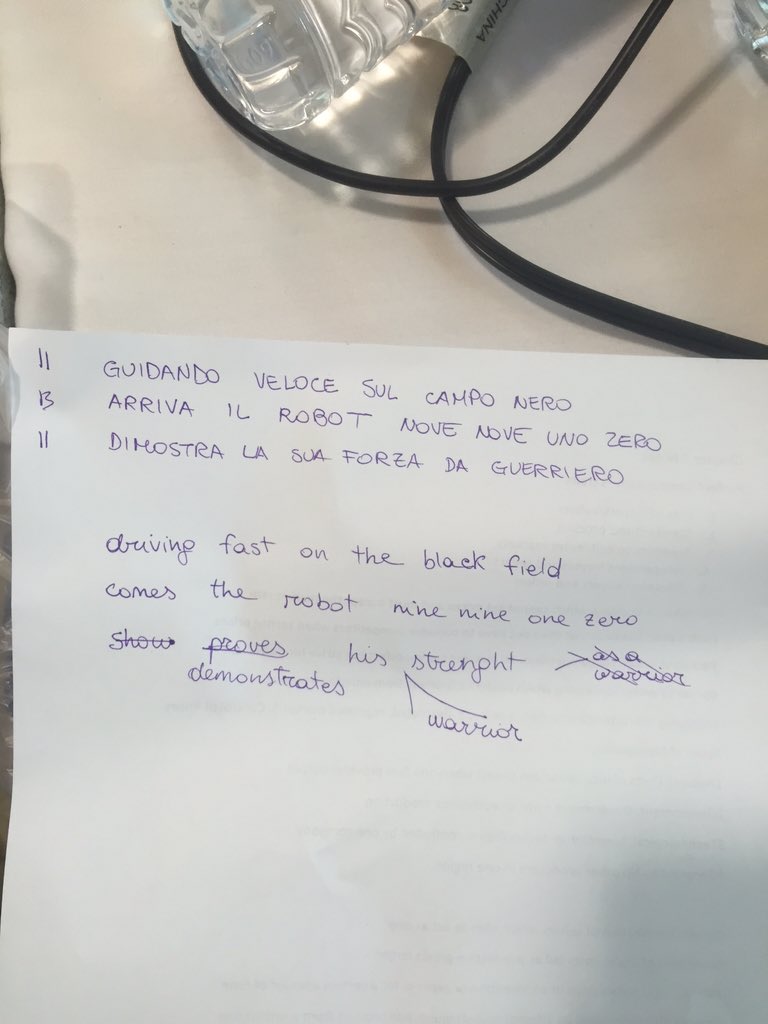 CHINA
11 GUIDANDO VELOCE SUL CAMPO NERO
13 ARRIVA IL ROBOT NOVE NOVE UNO ZERO
11 DIMOSTRA LA SUA FORZA DA GUERRIERO
driving fast on the black field
comes the robot nine nine one zero
show proves his strenght as a warrior
demonstrates
warrior